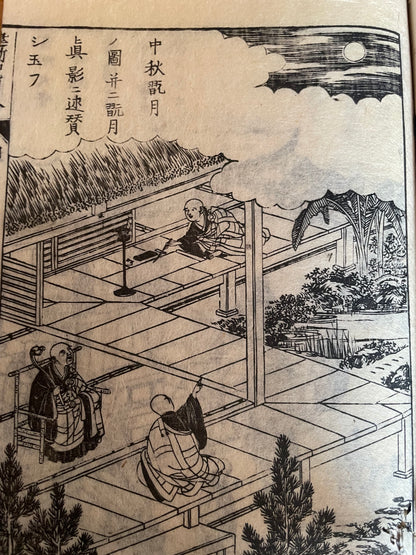 中秋翫月
ノ圖并ニ翫月
眞影ニ迹賛
シ玉フ